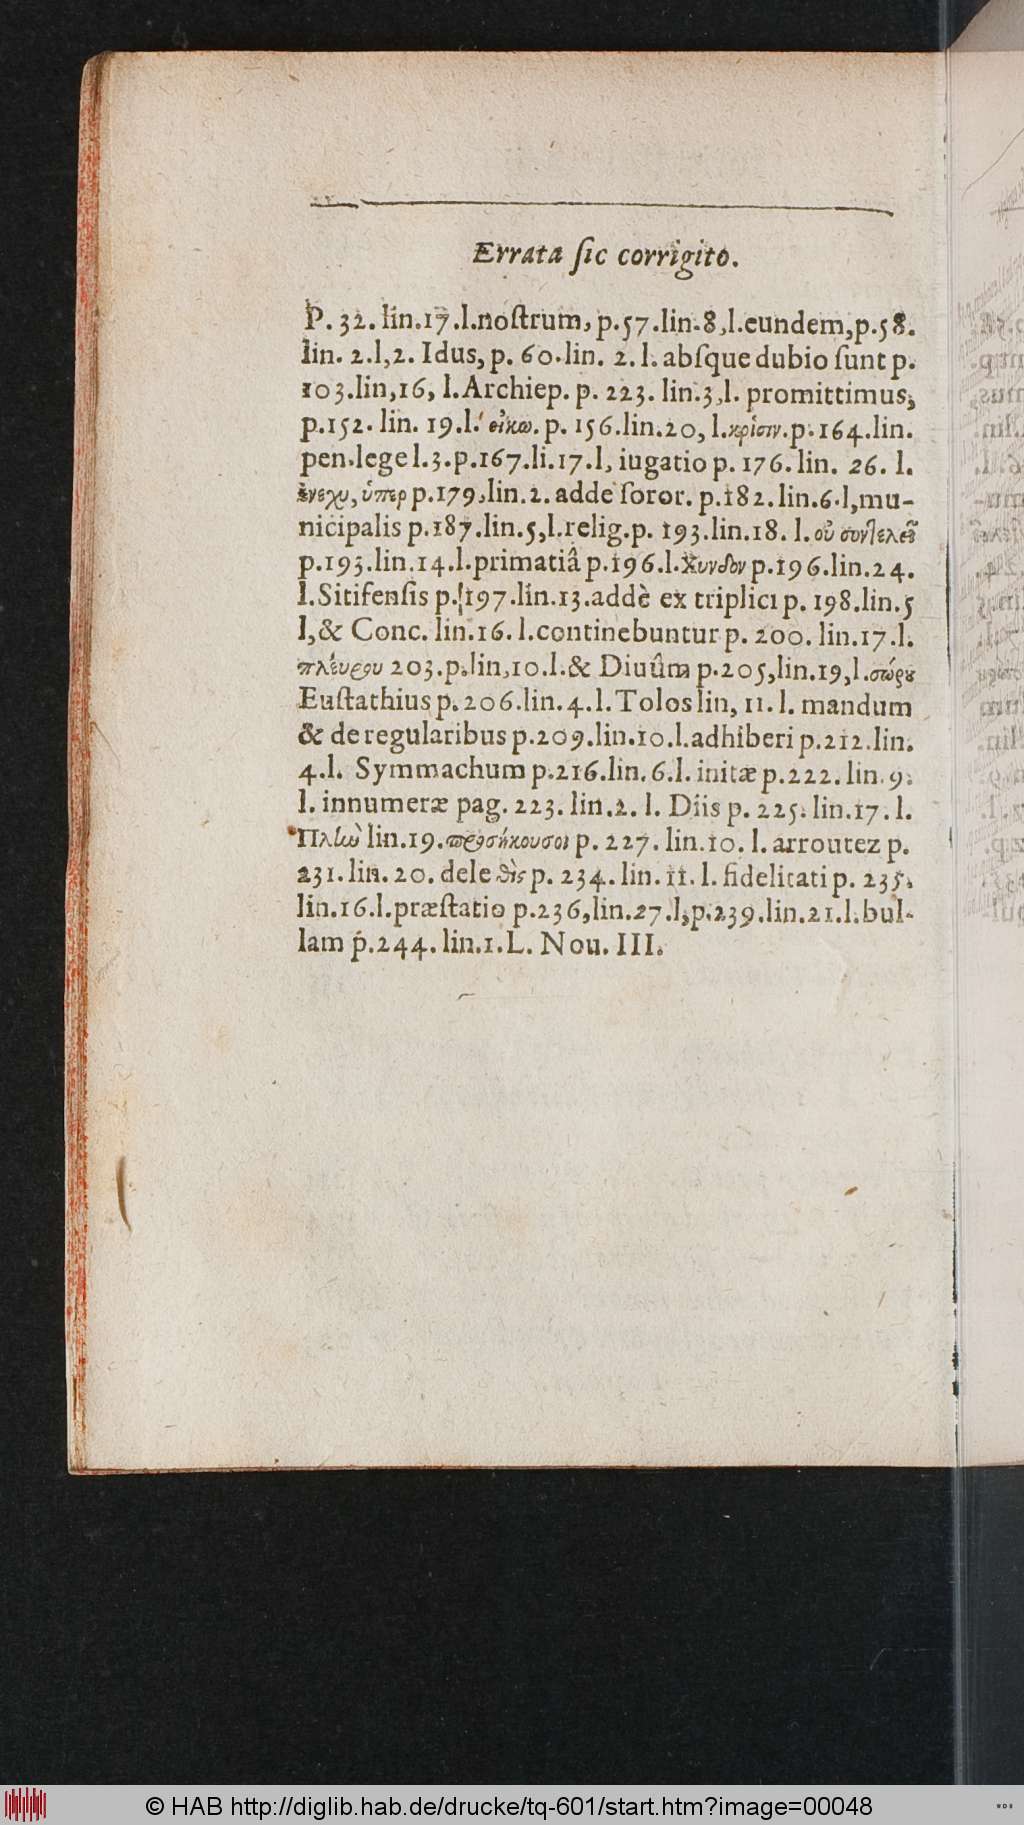 Errata ſic corrigito.
P. 32. lin.17.l.noſtrum, p.57.lin.8,l.eundem,p.58.
lin. 2.l,2. Idus, p. 60.lin. 2. l. abſque dubio ſunt p.
103.lin,16, l. Archiep. p. 223. lin.3,l. promittimus,
p.152. lin. 19.l. p. 156.lin.20, l.κρίσιν.p.164.lin.
pen.lege l.3.p.167.li.17.l, iugatio p. 176. lin. 26. l.
ὑπερ p.179,lin.2. adde ſoror. p.182.lin.6.l,mu-
nicipalis p.187.lin.5,l.relig.p. 193.lin.18. l. οὐ
p.193.lin.14.l.primatiâ p.196.l. p.196.lin.24.
l.Sitifenſis p.197.lin.13.addè ex triplici p. 198.lin.5
l,& Conc. lin.16. l.continebuntur p. 200. lin.17.l.
203.p.lin,10.l.& Diuûm p.205,lin.19,l.
Euſtathius p.206.lin.4.l.Tolos lin, 11. l. mandum
& de regularibus p.209.lin.10.l.adhiberi p.212.lin.
4.l. Symmachum p.216.lin.6.l. initæ p.222. lin.9.
l. innumeræ pag. 223. lin.2. l. Diis p. 225. lin.17. l.
lin.19.προσήκουσοι p. 227. lin.10. l. arroutez p.
231. lin. 20. dele p. 234. lin. 11. l. fidelitati p. 235.
lin.16.l.præſtatio p.236,lin.27.l,p.239.lin.21.l.bul-
lam p.244. lin.1.L. Nou. III.
© HAB http://diglib.hab.de/drucke/tq-601/start.htm?image=00048